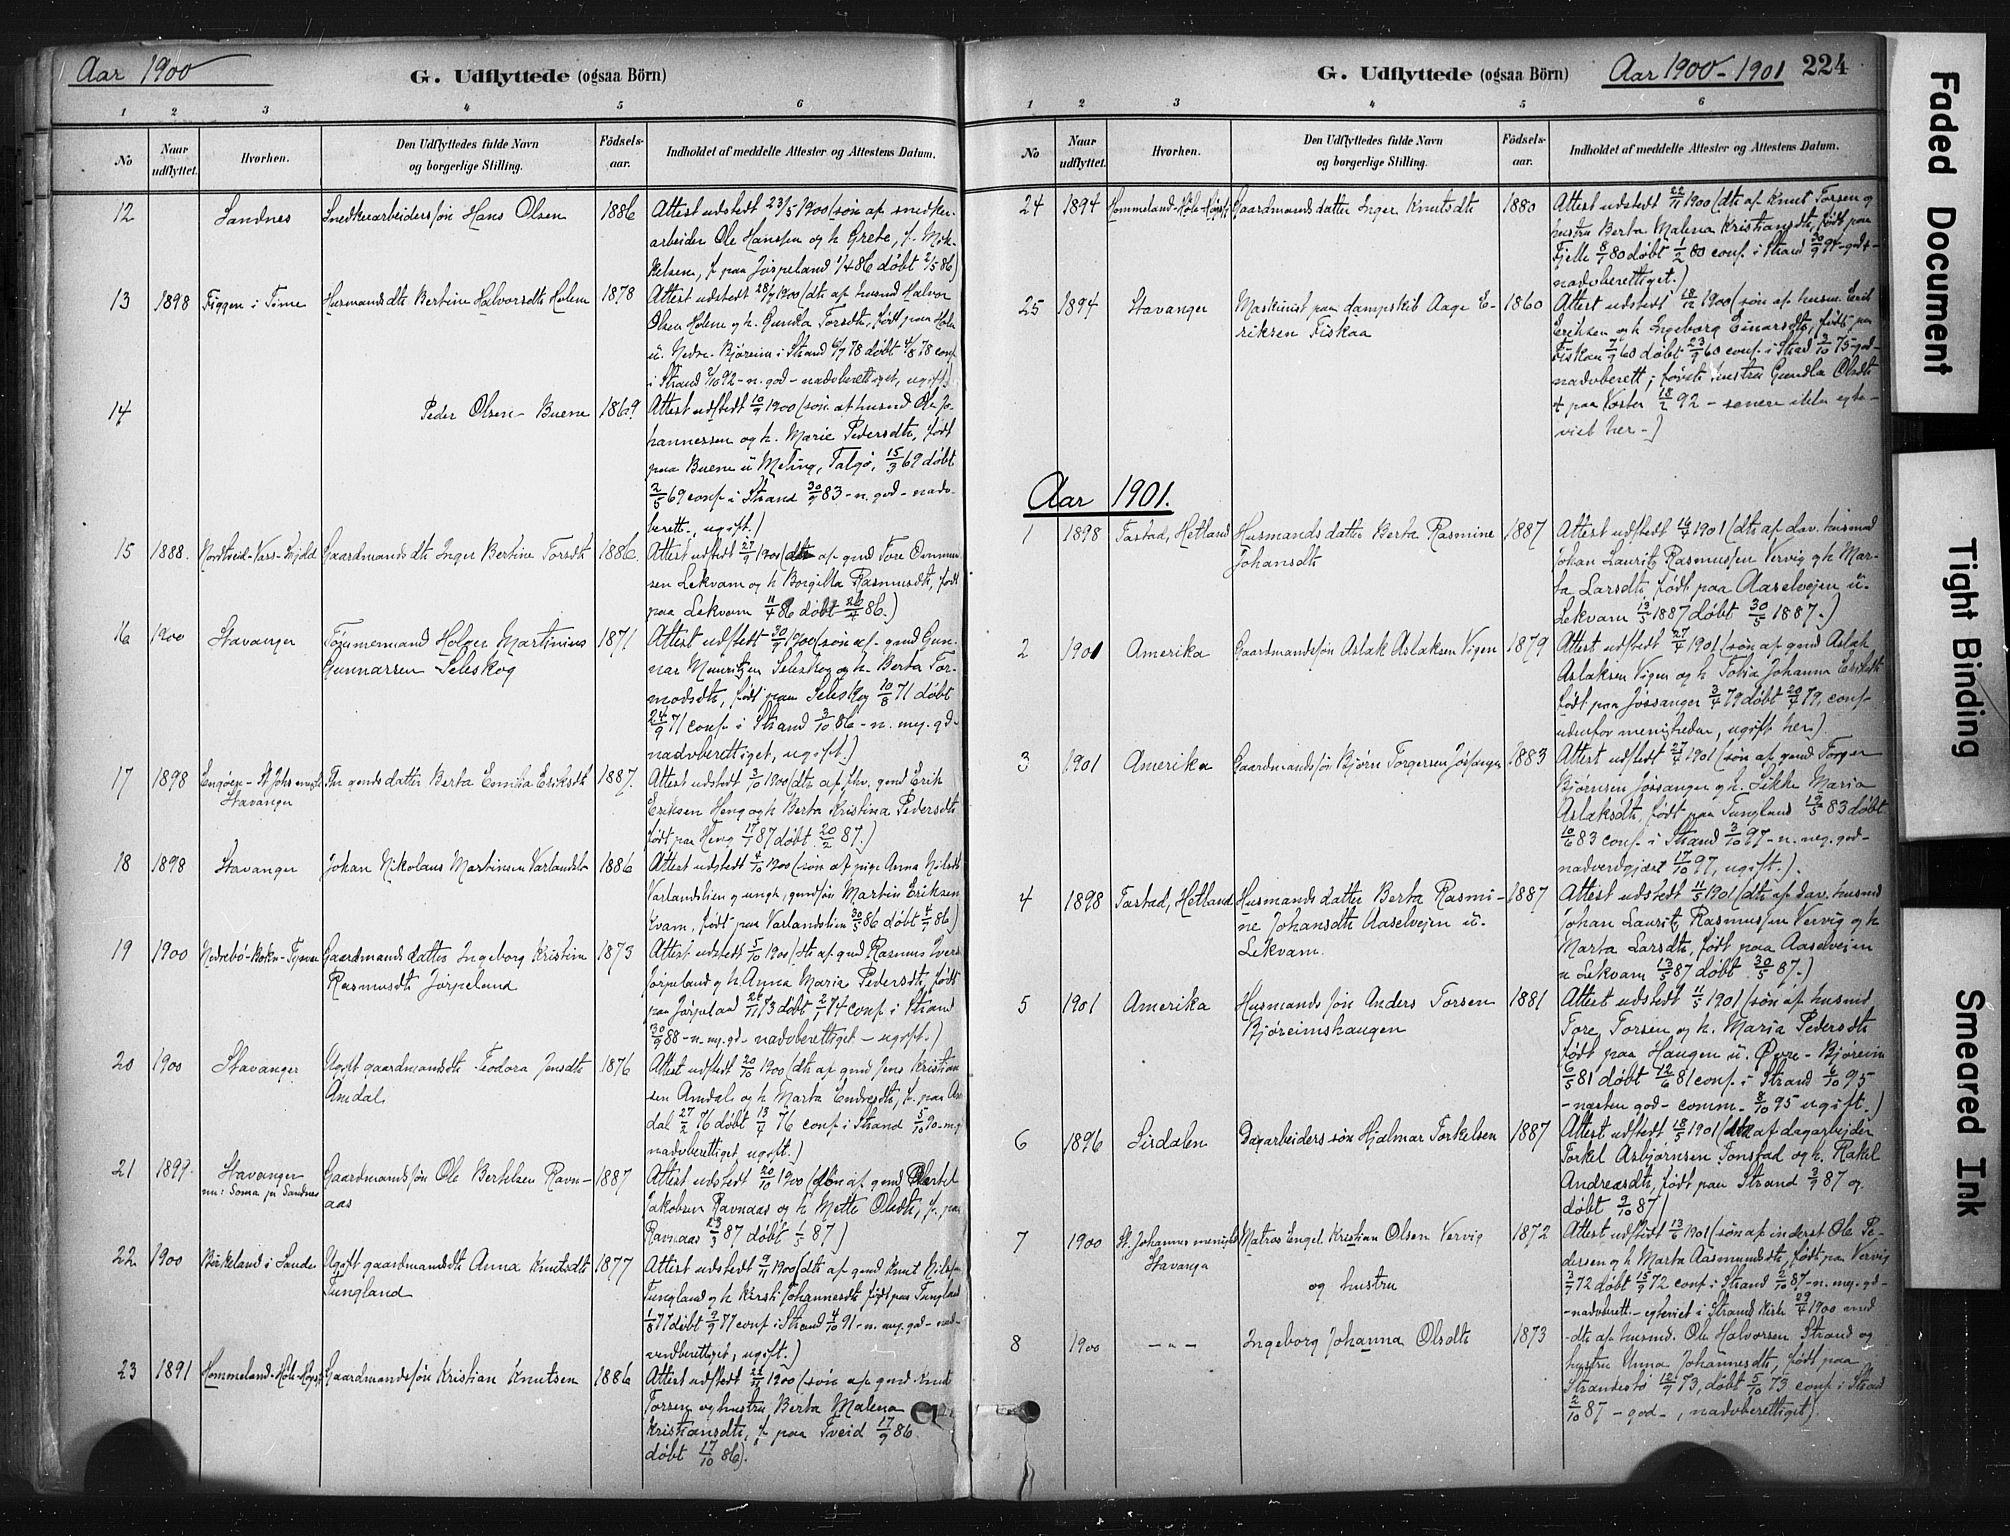 Aar 1900
G. Udflyttede (ogsaa Börn)
1 2 3 4 5 6
No Naar udflyttet. Hvorhen. Den Udflyttedes fulde Navn og borgerlige Stilling. Födsels-aar. Indholdet af meddelte Attester og Attestens Datum.
12 Sandnes Snedkerarbeidersøn Hans Olsen 1886 Attest udstedt 23/5 1900 (søn af snedker-
arbeider Ole Hansen og h. Grete, f. Mik-
kelsen, f. paa Jørpeland 1/4 86 døbt 2/5 86)
13 1898 Figgen i Time Husmandsdtr Bertine Halvorsdtr Holene 1878 Attest udstedt 28/7 1900 (dtr af husmd Halvor
Olsen Holene og h. Gundla Torsdtr, født paa Holen
u. Nedre-Bjøreim i Strand 6/7 78 døbt 4/8 78 conf.
i Strand 2/10 92 - n. god - nadvberettiget, ugift)
14 Peder Olsen Buene 1869 Attest udstedt 10/9 1900 (søn af husmd Ole Jo-
hannessen og h. Marie Pedersdtr, født
paa Buene u Meling, Talgø, 15/3 69 døbt
2/5 69 conf. i Strand 30/9 83 - n. god - nadv-
berett., ugift.)
15 1888. Gaardmandsdtr Inger Bertine Torsdtr 1886. Attest udstedt 27/9 1900 (dtr af gmd Tore Ommun-
sen Lekvam og h Borgilla Rasmusdtr, født
paa Lekvam 11/4 86 døbt 26/4 86.)
16 1900 Stavanger Tømmermand Holger Martinius 1871 Attest udstedt 30/9 1900 (søn af gmd Gun-
Gunnarsen Seleskog
nar Mauritzen Seleskog og h. Berta Tor-
modsdtr, født paa Seleskog 10/8 71 døbt
24/9 71 conf. i Strand 3/10 86 - n. meg. gd-
nadvberettiget, ugift.)
17 1898 Engøen - St Johs mengh Fhv gmds datter Berta Emilia Eriksdtr 1887. Attest udstedt 3/10 1900 (dtr af fhv. gmd Erik
Stavanger
Eriksen Heng og h Berta Kristina Pedersdtr
født paa Heng 17/1 87 døbt 20/2 87.)
18 1898 Stavanger Johan Nikolaus Martinsen Varlandsli 1886 Attest udstedt 4/10 1900 (søn af pige Anna Nilsdtr
Varlandslien og ungk. gmdsøn Martin Eriksen
Kvam, født paa Varlandslien 30/5 86 døbt 4/7 86)
19 1900 Nedrebö-Bokn-Tysvær Gaardmands datter Ingeborg Kristine 1873 Attest udstedt 5/10 1900 (dtr af gmd Rasmus Iversen
Rasmusdtr Jørpeland
Jørpeland og h. Anna Maria Pedersdtr, født
paa Jørpeland 21/11 73 døbt 2/1 74 conf. i Strand
30/9 88 - n. mg. gd. - nadvberettiget - ugift.)
20 1900 Stavanger Ugift gaardmandsdtr Teodora Jensdtr 1876 Attest udstedt 20/10 1900 (dtr af gmd Jens Kristian-
Amdal
sen Amdal og h Marta Endresdtr, f. paa Am-
dal 27/2 76 døbt 13/4 76 conf. i Strand 5/10 90 - mg
nadvberettiget, ugift.)
21 1899. Stavanger Gaardmandssøn Ole Bertelsen Ravn- 1887 Attest udstedt 20/10 1900 (søn af gmd Bertel
nu: Soma pr Sandnes
aas
Jakobsen Ravnaas og h. Mette Olsdtr, f. paa
Ravnaas 23/3 87 døbt 1/5 87)
22 1900 Birkeland i Sandei Ugift gaardmandsdtr Anna Knutsdtr 1877 Attest udstedt 9/11 1900 (dtr af gmd Knut Nilsen
Tungland
Tungland og h Kirsti Johannesdtr født paa Tungland
1/8 77 døbt 9/9 77 conf. i Strand 4/10 91 - n. meg. gd - nad-
verdberettiget, ugift.)
23 1891 Hommeland-Høle-Høgsfj Gaardmandssøn Kristian Knutsen 1886 Attest udstedt 22/11 1900 (søn af gmd Knut
Torsen og hustru Berta Malena
Kristiansdtr, f. paa Tveid 17/9 86
døbt 17/10 86).
G. Udflyttede (ogsaa Börn)
Aar 1900-1901 224
1 2 3 4 5 6
No Naar udflyttet. Hvorhen. Den Udflyttedes fulde Navn og borgerlige Stilling. Födsels-aar. Indholdet af meddelte Attester og Attestens Datum.
24 1894 Hommeland-Høle-Høgsfj Gaardmandsdatter Inger Knutsdtr 1880 Attest udstedt 22/11 1900 (dtr af Knut Torsen og
hustru Berta Malena Kristiansdtr, født paa
Fjelle 8/1 80 døbt 1/2 80 conf. i Strand 30/9 94 - god -
nadvberettiget.)
25 1894 Stavanger Maskinist paa dampskib Aage E- 1860 Attest udstedt 18/12 1900 (søn af husm. Erik
riksen Fiskaa
Eriksen og h Ingeborg Einarsdtr, født paa
Fiskaa 7/9 60 døbt 23/9 60 conf. i Strand 3/10 75 - god -
nadvberett; første hustru Gundla Olsdtr
+ paa Voster 18/2 92 - senere ikke egte-
viet her -)
Aar 1901.
1 1898 Tastad, Hetland Husmandsdatter Berta Rasmine 1887 Attest udstedt 16/4 1901 (dtr af dav. husmd
Johansdtr
Johan Lauritz Rasmussen Vervig og h Mar-
ta Larsdtr, født paa Aaselvejen u.
Lekvam 13/5 1887 døbt 30/5 1887.)
2 1901 Amerika Gaardmandssøn Aslak Aslaksen Vigen 1879 Attest udstedt 27/4 1901 (søn af gmd Aslak
Aslaksen Vigen og h Tobia Johanna Eriksdtr
født paa Jøssanger 3/4 79 døbt 20/4 79, conf.
udenfor menigheden, ugift her.)
3 1901 Amerika Gaardmandssøn Bjørn Torgersen Jøssanger 1883 Attest udstedt 27/4 1901 (søn af gmd Torger
Bjørnsen Jøssanger og h. Sikke Maria
Aslaksdtr, født paa Tungland 19/5 83 døbt
10/6 83 conf. i Strand 3/10 97 - n. meg. god -
nadverdgjæst 17/10 97, ugift.)
4 1898 Tastad, Hetland Husmandsdatter Berta Rasmi- 1887 Attest udstedt 11/5 1901 (dtr af dav. husmd
ne Johansdtr Aaselvejen u.
Lekvam.
Johan Lauritz Rasmussen Vervig og h
Marta Larsdtr, født paa Aaselvejen
u Lekvam 13/5 87 døbt 30/5 87.)
5 1901 Amerika Husmandssøn Anders Torsen 1881 Attest udstedt 11/5 1901 (søn af husmd
Bjøreimshaugen
Tore Torsen og h. Maria Pedersdtr
født paa Haugen u. Øvre-Bjøreim
6/5 81 døbt 12/6 81 conf. i Strand 6/10 95 -
- næsten god - comm. 8/10 95 ugift.)
6 1896 Sirdalen Dagarbeiders søn Hjalmar Torkelsen 1887 Attest udstedt 18/5 1901 (af dagarbejder
Torkel Asbjørnsen Tonstad og h. Rakel
Andreasdtr, født paa Strand 3/9 87 og
døbt 9/10 87)
7 1900 St. Johannes menighed Matros Engel Kristian Olsen Vervig 1872 Attest udstedt 13/6 1901 (søn af inderst Ole Pe-
Stavanger
og hustru
dersen og h Marta Aasmundsdtr, født paa Vervig
3/9 72 døbt 15/9 72 conf. i Strand 2/10 87 - n. meg. gd -
- nadvberett. - egteviet i Strand Kirke 29/4 1900 med
8 1900 -"- Ingeborg Johanna Olsdtr 1873 - dtr af husmd. Ole Halvorsen Strand og
hustru Anna Johannesdtr, født paa
Strandestø 12/9 73, døbt 5/10 73 conf. i Strand
2/10 87 - god -, nadvberettiget).
Faded Document
Tight Binding
Smeared Ink